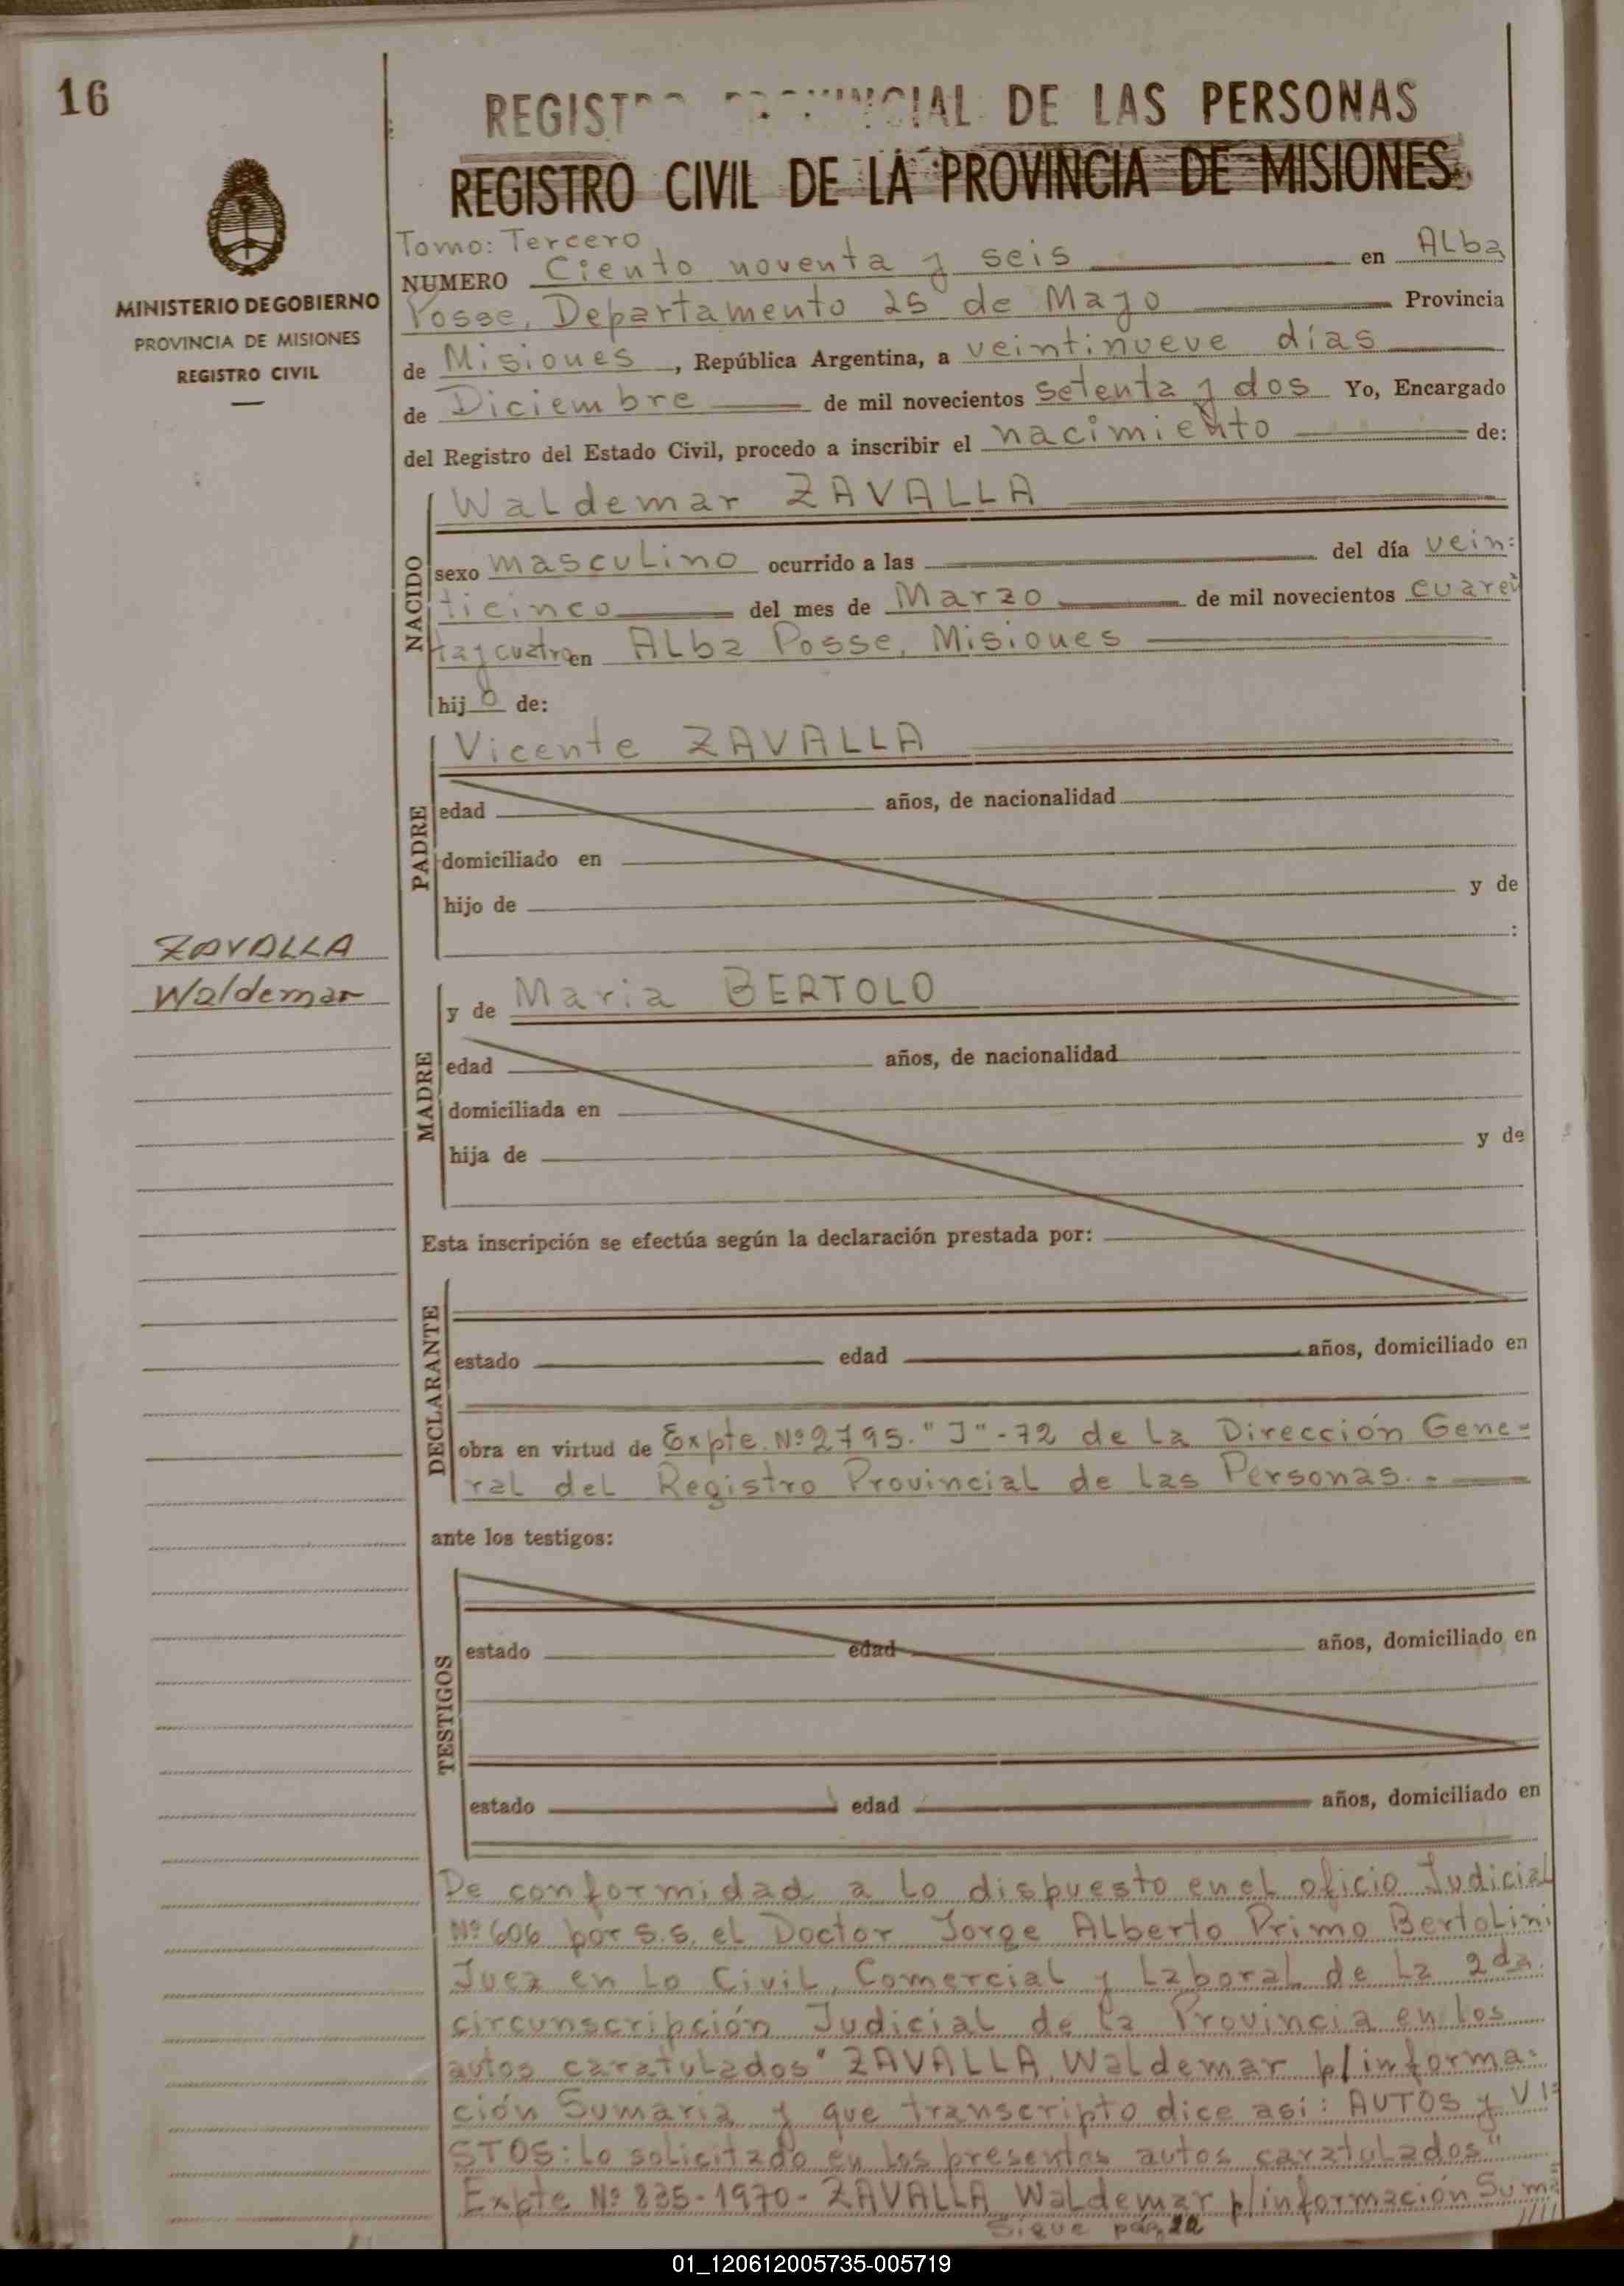 16
REGISTRO PROVINCIAL DE LAS PERSONAS
REGISTRO CIVIL DE LA PROVINCIA DE MISIONES
MINISTERIO DE GOBIERNO
PROVINCIA DE MISIONES
REGISTRO CIVIL
Tomo: Tercero
NUMERO Ciento noventa y seis en Alba
Posse, Departamento 25 de Mayo Provincia
de Misiones, República Argentina, a veintinueve días
de Diciembre de mil novecientos setenta y dos Yo, Encargado
del Registro del Estado Civil, procedo a inscribir el nacimiento de:
NACIDO
Waldemar ZAVALLA
sexo masculino ocurrido a las del día vein=
ticinco del mes de Marzo de mil novecientos cuaren
ta y cuatro en Alba Posse, Misiones
hijo de:
PADRE
Vicente ZAVALLA
edad años, de nacionalidad
domiciliado en
hijo de y de
:
ZAVALLA
Waldemar
MADRE
y de Maria BERTOLO
edad años, de nacionalidad
domiciliada en
hija de y de
Esta inscripción se efectúa según la declaración prestada por:
DECLARANTE
estado edad años, domiciliado en
obra en virtud de Expte. Nº 2795. "J"-72 de la Dirección Gene=
ral del Registro Provincial de las Personas.=
ante los testigos:
TESTIGOS
estado edad años, domiciliado en
estado edad años, domiciliado en
De conformidad a lo dispuesto en el oficio Judicial
Nº 606 por s.s. el Doctor Jorge Alberto Primo Bertolini
Juez en lo Civil, Comercial y Laboral de la 2da.
circunscripción Judicial de la Provincia en los
autos caratulados "ZAVALLA, Waldemar p/informa=
ción Sumaria y que transcripto dice asi: AUTOS y VI=
STOS: Lo solicitado en los presentes autos caratulados"
Expte Nº 835-1970- ZAVALLA Waldemar p/información Suma
Sigue pág.
////
01_120612005735-005719